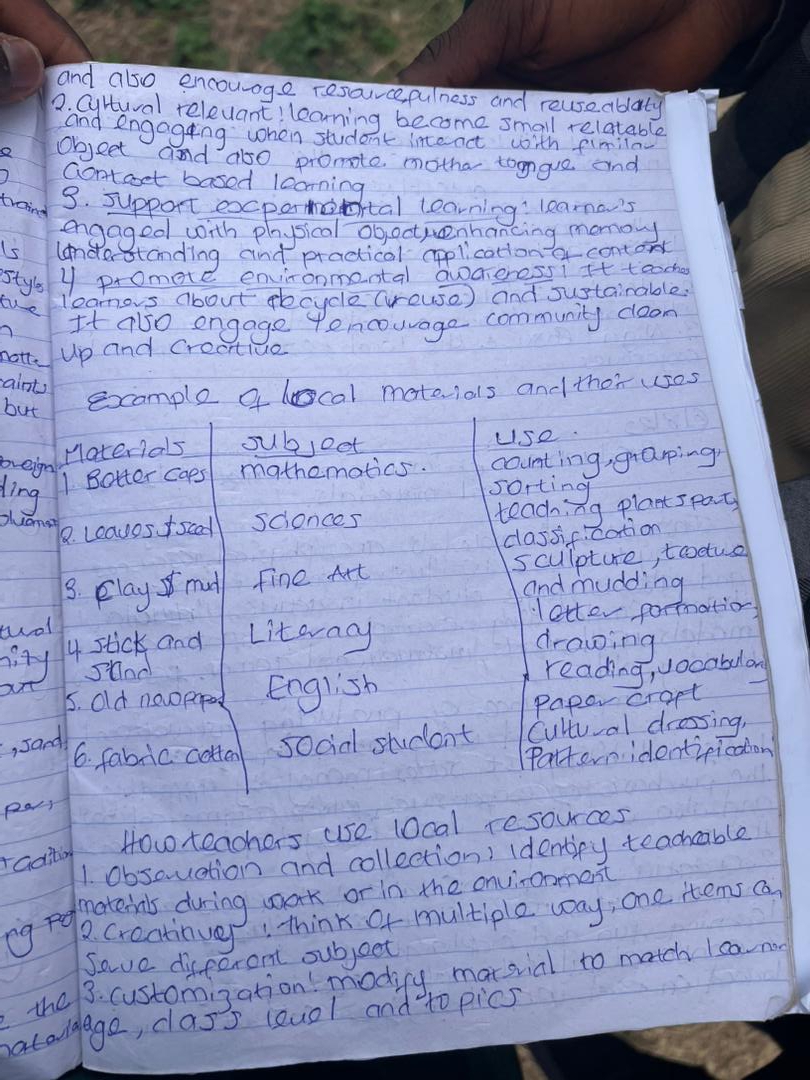 and also encourage resourcefulness and reuseablaty
2. Cultural relevant: learning become small relatable
and engaging when student interact with fimilar
Object and also promote mother tongue and
Contact based learning
3. Support experimental learning: learner's
engaged with physical object, enhancing memory
Understanding and practical application of content
4 promote environmental awareness: It teaches
learners about recycle (reuse) and sustainable.
It also engage & encourage community clean
Up and Creative
Example of local materials and their uses
Materials subject use.
1 Botter caps mathematics. counting, grouping,
sorting
2. Leaves & seed Sciences teaching plants part,
classification
3. Clay & mud Fine Art sculpture,
and mudding
4 stick and Literacy letter formation,
Sand drawing
5. Old newpaper English reading, vocabulary
Paper craft
6. fabric cotten Social student Cultural dressing,
Pattern identification
How teachers use local resources
1. Observation and collection: identify teacheable
materials during work or in the environment
2. Creativity: think of multiple way, one items can
Serve different subject
3. Customization: modify material to match learner
age, class level and topics